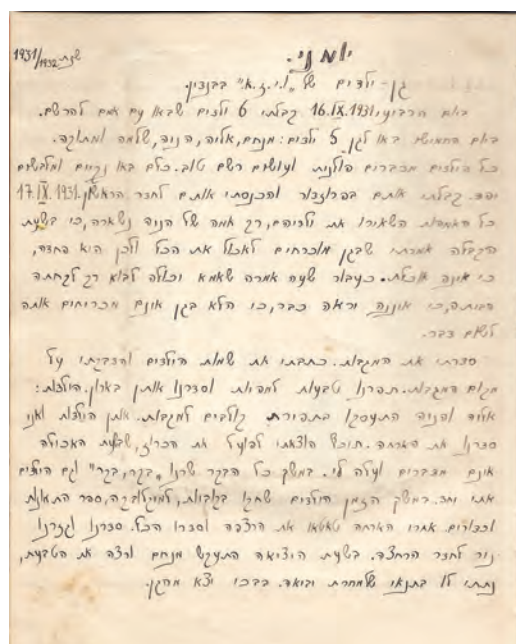 שנת 1931/1932
יומני.
גן-ילדים של "ו.י.צ.א." בבנדין.
באם הרביעי 16.IX.1931 קבלתי 6 ילדים שבאו עם אמם להרשם.
באם החמישי באו לגן 5 ילדים: מנחם, אליה, הניה, שלמה ומתוקה.
כל הילדים מדברים פולנית ועושים רשם טוב. כלם באו נקיים ומלבשים
יפה. קבלתי אותם בפרוזדור והכנסתי אותם לחדר הראשון. 17.IX.1931
כל האמהות השאירו את ילדיהן, רק אמה של הניה נשארה, כי בשעת
הקבלה אמרתי שבגן מוכרחים לאכול את הכל ולכן היא פחדה,
כי אינה אוכלת. כעבור שעה אמרה שאמא יכולה לבוא רק לקחתה
הביתה, כי איננה יראה כבר, כי הלא בגן אינם מכריחים אתה
לשום דבר.
סדרתי את המגבות. כתבתי את שמות הילדים והדבקתי על
מקום המגבות. תפרנו טבעות למפיות וסדרנו אותן בארון. הילדות:
אליה והניה התעסקו בתפירת קולבים למגבות. אתן הילדות ואני
סדרנו את הארחה. תוכף הוצאתי לפועל את הכרוז, שבעת האכולה
אינם מדברים ועלה לי. במשך כל הבקר שרנו "בקר, בקר" וגם הילדים
אתי יחד. במשך הזמן הילדים שחקו בקוביות, ספר התמונות
וכדורים. אחרי הארחה טאטאו את הרצפה וסדרו הכל. סדרנו וגזרנו
נור לחדר הרחצה. בשעת היציאה התעקש מנחם ורצה את הטבעת,
נתתי לו בתנאי שלמחרת יביאה. בבכי יצא מהגן.